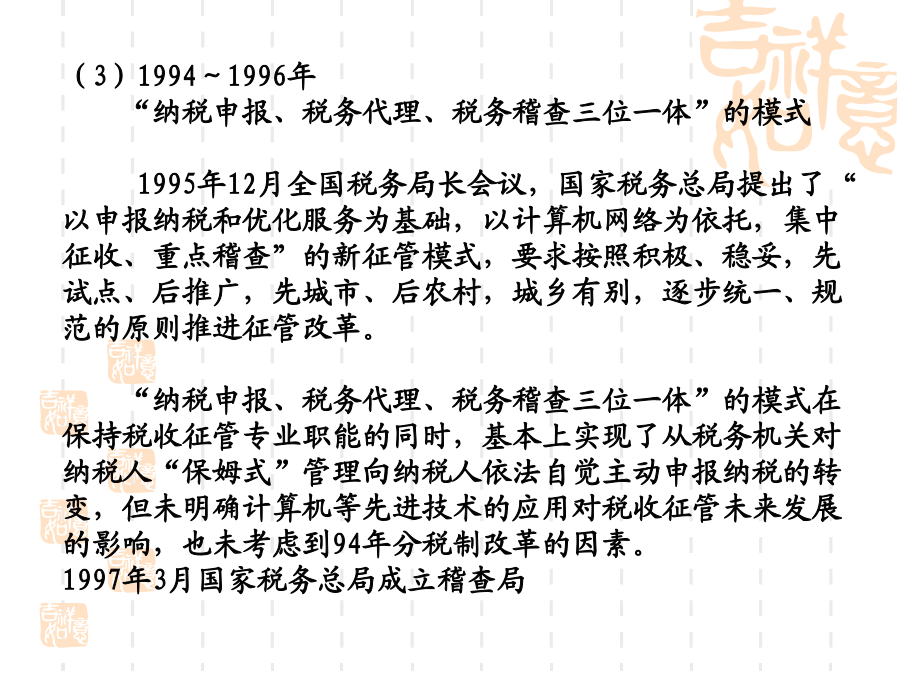 （3）1994～1996年
“纳税申报、税务代理、税务稽查三位一体”的模式
1995年12月全国税务局长会议，国家税务总局提出了“
以申报纳税和优化服务为基础，以计算机网络为依托，集中
征收、重点稽查”的新征管模式，要求按照积极、稳妥，先
试点、后推广，先城市、后农村，城乡有别，逐步统一、规
范的原则推进征管改革。
“纳税申报、税务代理、税务稽查三位一体”的模式在
保持税收征管专业职能的同时，基本上实现了从税务机关对
纳税人“保姆式”管理向纳税人依法自觉主动申报纳税的转
变，但未明确计算机等先进技术的应用对税收征管未来发展
的影响，也未考虑到94年分税制改革的因素。
1997年3月国家税务总局成立稽查局
吉祥如意
吉祥如意
吉祥如意
吉祥如意
吉祥如意
吉祥如意
吉祥如意
吉祥如意